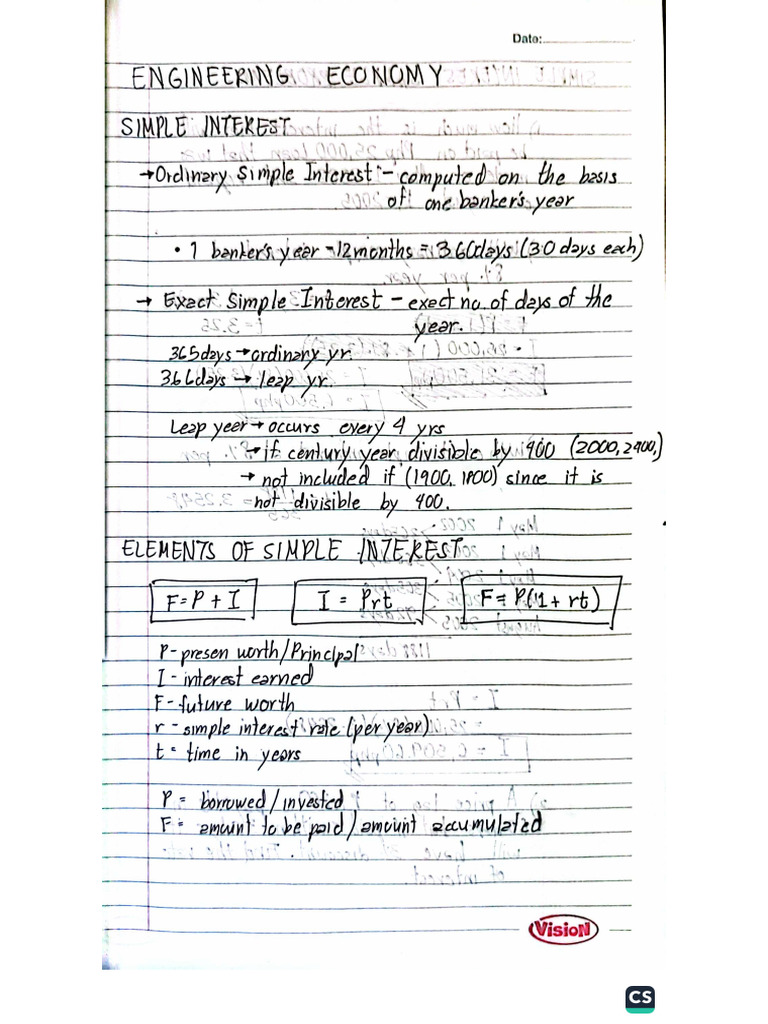 Date:
ENGINEERING ECONOMY
SIMPLE INTEREST
→Ordinary Simple Interest - computed on the basis
of one banker's year
• 1 banker's year = 12 months = 360days (30 days each)
→ Exact Simple Interest - exact no. of days of the
year.
365days → ordinary yr.
366days → leap yr.
Leap year → occurs every 4 yrs
→ if century year divisible by 400 (2000, 2400,)
→ not included if (1900, 1800) since it is
not divisible by 400.
ELEMENTS OF SIMPLE INTEREST
F=P+I I = Prt F = P(1+rt)
P-presen worth/Principal
I - interest earned
F-future worth
r - simple interest rate (per year)
t = time in years
P = borrowed/invested
F = amount to be paid/amount accumulated
Vision
CS